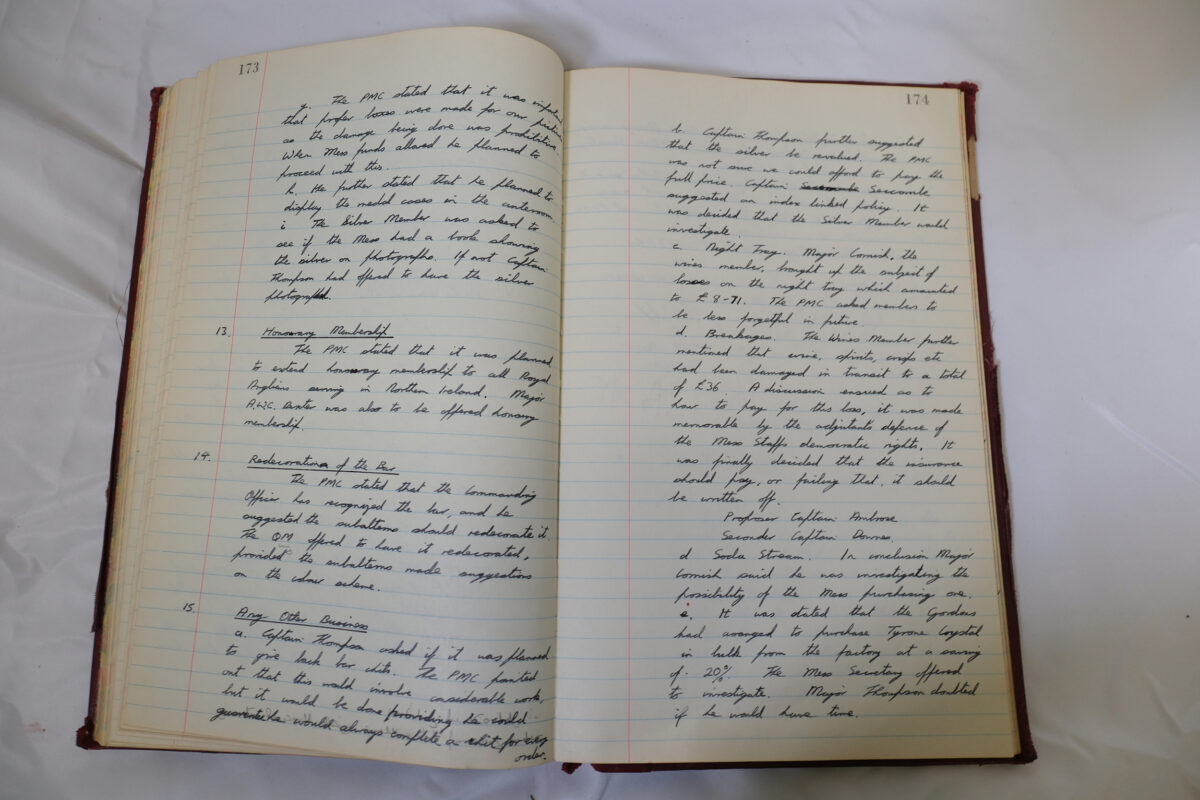 173
g. The PMC stated that it was importan
that proper boxes were made for our picture
as the damage being done was prohibitive.
When Mess funds allowed he planned to
proceed with this.
h. He further stated that he planned to
display the medal cases in the anteroom
i The Silver Member was asked to
see if the Mess had a book showing
the silver on photographs. If not Captain
Thompson had offered to have the silver
photographed.
13. Honourary Membership
The PMC stated that it was planned
to extend honourary membership to all Royal
Anglians serving in Northern Ireland. Major
Baxter was also to be offered honoury
membership.
14. Redecorations of the Bar
The PMC stated that the Commanding
Officer has recognized the bar, and he
suggested the subalterns should redecorate it.
The QM offered to have it redecorated,
provided the subalterns made suggestions
on the colour scheme.
15. Any Other Business
a. Captain Thompson asked if it was planned
to give back bar chits. The PMC pointed
out that this would involve considerable work,
but it would be done providing he could
guarentee he would always complete a chit for every
order.
174
b. Captain Thompson further suggested
that the silver be revalued. The PMC
was not sure we could afford to pay the
full price. Captain Seccombe
suggested an index linked policy. It
was decided that the Silver Member would
investigate.
c. Night Tray. Major Cornish, the
wines member, brought up the subject of
losses on the night tray which amounted
to £8-71. The PMC asked members to
be less forgetful in future.
d. Breakages. The Wines Member further
mentioned that wine, spirits, crisps etc
had been damaged in transit to a total
of £36. A discussion ensued as to
how to pay for this loss, it was made
memorable by the adjutants defence of
the Mess Staffs democratic rights. It
was finally decided that the insurance
should pay, or failing that, it should
be written off.
Proposer Captain Ambrose
Seconder Captain Downes.
d Soda Stream. In conclusion Major
Cornish said he was investigating the
possibility of the Mess purchasing one.
e. It was stated that the Gordons
had arranged to purchase Tyrone Crystal
in bulk from the factory at a saving
of 20%. The Mess Secretary offered
to investigate. Major Thompson doubted
if he would have time.